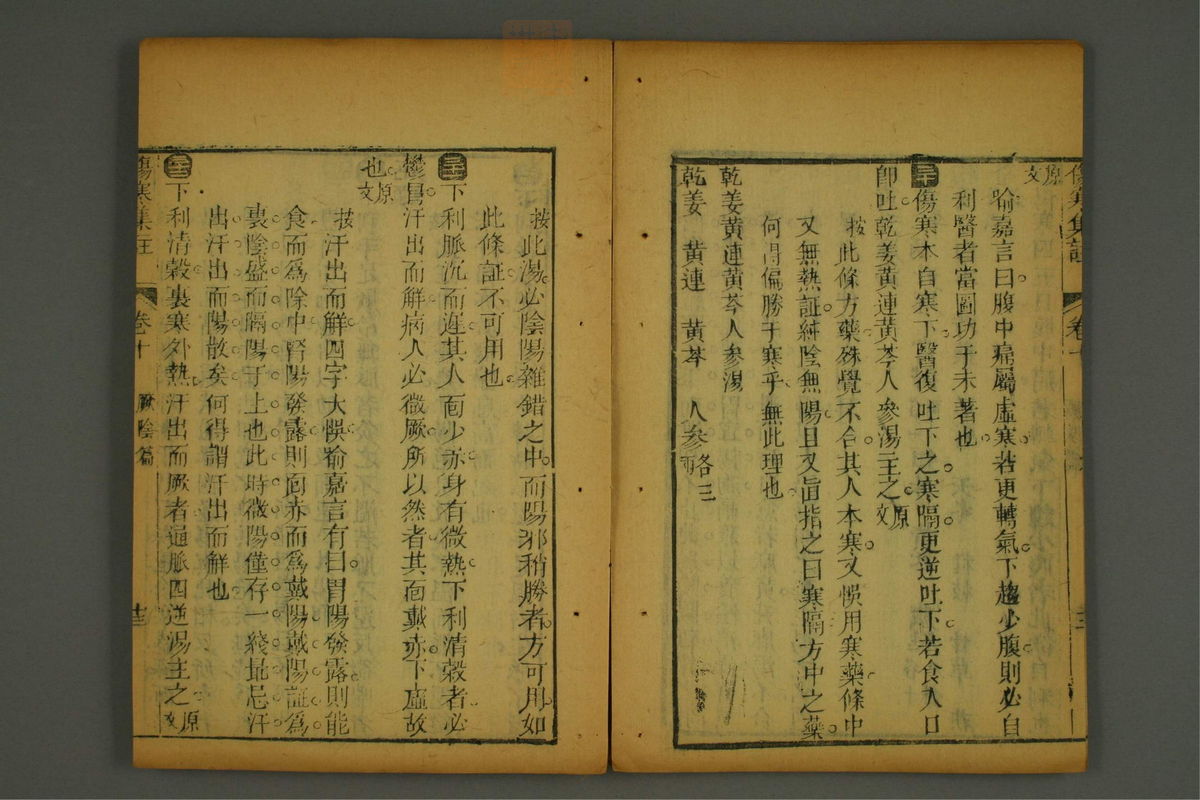 傷寒集註 卷十
原文
喻嘉言曰腹中痛屬虛寒若更轉氣下趨少腹則必自
利醫者當圖功于未著也
三十 傷寒本自寒下醫復吐下之寒隔更逆吐下若食入口
卽吐乾姜黃連黃芩人參湯主之原文
按此條方藥殊覺不合其人本寒又悞用寒藥條中
又無熱証純陰無陽且又旨指之曰寒隔方中之藥
何得偏勝于寒乎無此理也
乾姜黃連黃芩人參湯
乾姜 黃連 黃芩 人參
按此湯必陰陽雜錯之中而陽邪稍勝者方可用如
此條証不可用也
三一 下利脈沉而遲其人面少赤身有微熱下利清穀者必
鬱冒汗出而解病人必微厥所以然者其面戴赤下虛故
也原文
按汗出而解四字大悞喻嘉言有曰胃陽發露則能
食而為除中腎陽發露則面赤而為戴陽戴陽証為
裏陰盛而隔陽于上也此時微陽僅存一綫最忌汗
出汗出而陽散矣何得謂汗出而解也
三二 下利清穀裏寒外熱汗出而厥者通脈四逆湯主之原文
傷寒集註 卷十 厥陰篇